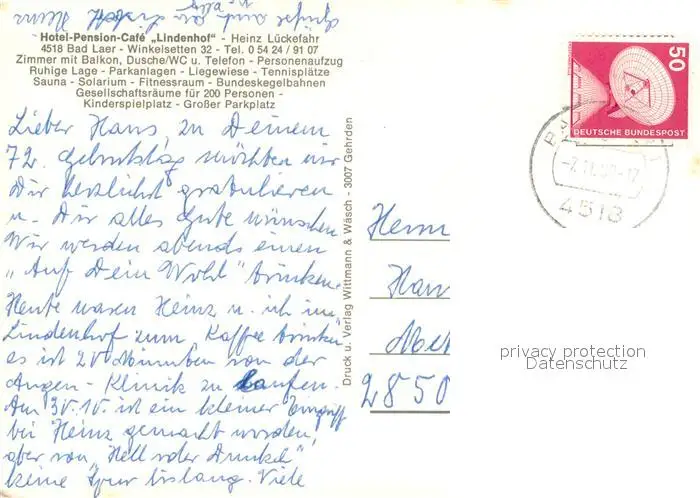 Hotel-Pension-Café „Lindenhof" - Heinz Lückefahr
4518 Bad Laer - Winkelsetten 32 - Tel. 0 54 24 / 91 07
Zimmer mit Balkon, Dusche/WC u. Telefon - Personenaufzug
Ruhige Lage - Parkanlagen - Liegewiese - Tennisplätze
Sauna - Solarium - Fitnessraum - Bundeskegelbahnen
Gesellschaftsräume für 200 Personen -
Kinderspielplatz - Großer Parkplatz
Lieber Hans, zu Deinem
72. Geburtstag möchten wir
Dir herzlichst gratulieren
u. Dir alles Gute wünschen
Wir werden abends einen
„Auf Dein Wohl" trinken.
Heute waren Heinz u. ich im
Lindenhof zum Kaffee trinken
es ist 20 Minuten von der
Augen-Klinik zu laufen.
Am 30.10. ist ein kleiner Eingriff
bei Heinz gemacht worden,
aber von „Hell oder Dunkel"
keine Spur bislang. Viele
Grüße auch an
Heinz
Druck u. Verlag Wittmann & Wäsch - 3007 Gehrden
50
DEUTSCHE BUNDESPOST
4518
Herrn
Han
2850
privacy protection
Datenschutz